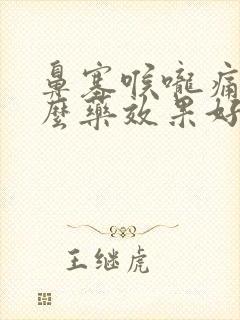 鼻塞喉咙痛
麼藥效果好
王继虎